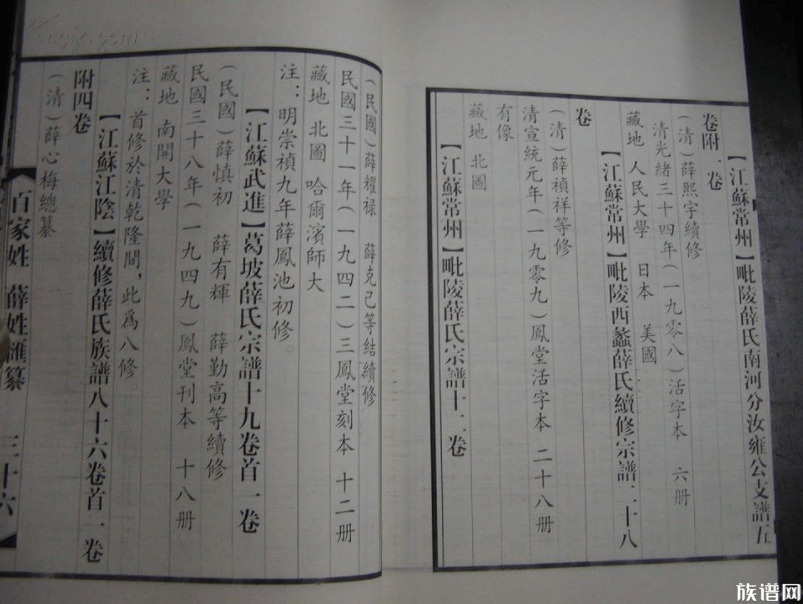 【江蘇常州】毗陵薛氏南河分汝雍公支譜五
卷附一卷
(清)薛熙字續修
清光緒三十四年(一九零八)活字本 六册
藏地 人民大學 日本 美國
【江蘇常州】毗陵西蠡薛氏續修宗譜二十八
卷
(清)薛禎祥等修
清宣統元年(一九零九)鳳堂活字本 二十八册
有像
藏地 北圖
【江蘇常州】毗陵薛氏宗譜十二卷
(民國)薛耀禄 薛克己等結續修
民國三十一年(一九四二)三鳳堂刻本 十二册
藏地 北圖 哈爾濱師大
注:明崇禎九年薛鳳池初修。
【江蘇武進】葛坡薛氏宗譜十九卷首一卷
(民國)薛慎初 薛有輝 薛勤高等續修
民國三十八年(一九四九)鳳堂刊本 十八册
藏地 南開大學
注:首修於清乾隆間,此爲八修。
【江蘇江陰】續修薛氏族譜八十六卷首一卷
附四卷
(清)薛心梅總纂
百家姓 薛姓滙纂 三十六
族谱网